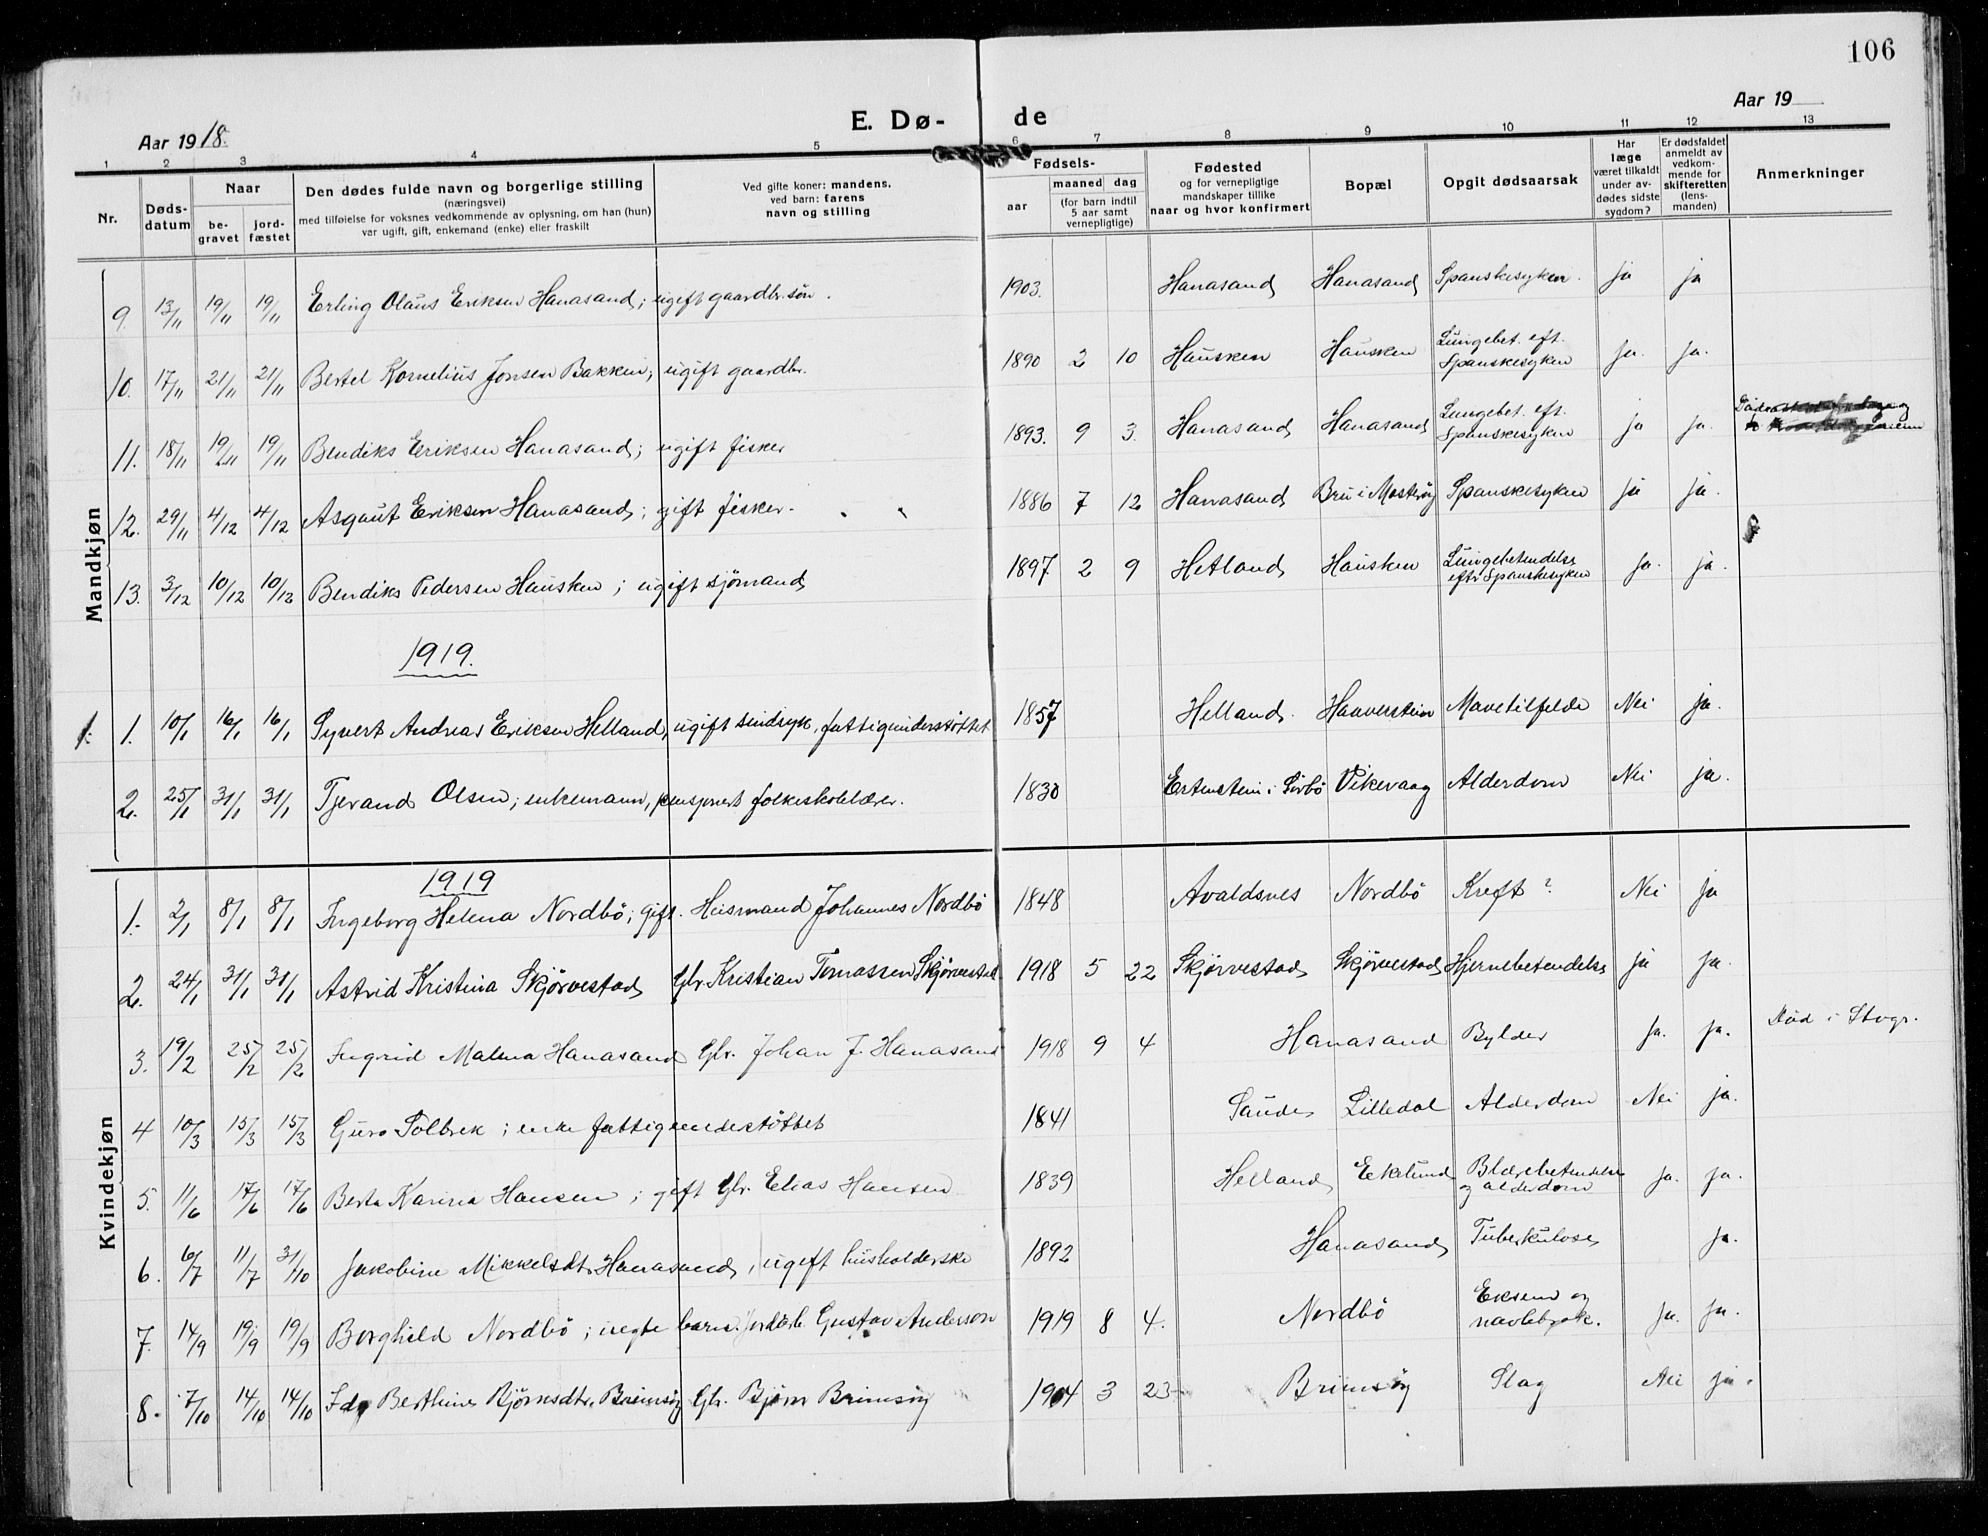 106
Aar 1918.
E. Dø- de
Aar 19
1 2 3 4 5 6 7 8 9 10 11 12 13
Nr.
Døds-
datum
Naar
be-
gravet
jord-
fæstet
Den dødes fulde navn og borgerlige stilling
(næringsvei)
med tilføielse for voksnes vedkommende av oplysning, om han (hun)
var ugift, gift, enkemand (enke) eller fraskilt
Ved gifte koner: mandens,
ved barn: farens
navn og stilling
Fødsels-
aar
maaned dag
(for barn indtil
5 aar samt
vernepligtige)
Fødested
og for vernepligtige
mandskaper tillike
naar og hvor konfirmert
Bopæl
Opgit dødsaarsak
Har
læge
været tilkaldt
under av-
dødes sidste
sygdom?
Er dødsfaldet
anmeldt av
vedkom-
mende for
skifteretten
(lens-
manden)
Anmerkninger
Mandkjøn
9. 13/11 19/11 19/11 Erling Olaus Eriksen Hanasand; ugift gaardbr.søn. 1903. Hanasand Hanasand Spanskesyken. ja ja
10. 17/11 21/11 21/11 Bertel Kornelius Jonsen Bakken; ugift gaardbr. 1890 2 10 Hausken Hausken Lungebet. eft.
Spanskesyken ja. ja.
11. 18/11 19/11 19/11 Bendiks Eriksen Hanasand; ugift fisker 1893. 9 3. Hanasand Hanasand Lungebet. eft.
Spanskesyken ja ja.
12. 29/11 4/12 4/12 Asgaut Eriksen Hanasand; gift fisker. 1886 7 12 Hanasand Bru i Mosterøy Spanskesyken ja ja.
13. 3/12 10/12 10/12 Bendiks Pedersen Hausken; ugift sjömand 1897 2 9 Hetland Hausken Lungebetendelse
eftr Spanskesyken ja. ja.
1919.
1. 1. 10/1 16/1 16/1 Syvert Andreas Eriksen Helland, ugift sindsyk, fattigunderstöttet 1857 Helland. Haaverstein Mavetilfelde Nei ja.
2. 25/1 31/1 31/1 Tjerand Olsen; enkemann, pensjonert folkeskolelærer. 1830 Ertenstein i Sörbö Vikevaag Alderdom Nei ja.
Kvindekjøn
1919
1. 2/1 8/1 8/1 Ingeborg Helena Nordbö; gift. Husmand Johannes Nordbö 1848 Avaldsnes Nordbö Kreft? Nei ja
2. 24/1 31/1 31/1 Astrid Kristina Skjørvestad Gbr. Kristian Tomassen Skjørvestad 1918 5 22 Skjørvestad Skjørvestad Hjernebetendelse ja ja.
3. 19/2 25/2 25/2 Ingrid Malena Hanasand Gbr. Johan J. Hanasand 1918 9 4 Hanasand Bylder ja. ja. Död i Stvgr.
4 10/3 15/3 15/3 Guro Solbrek; enke fattigunderstöttet 1841 Saude Lilledal Alderdom Nei ja.
5. 11/6 17/6 17/6 Berta Karina Hansen; gift Gbr. Elias Hansen 1839 Helland Eikelund Blærebetendelse
og alderdom ja. ja.
6. 6/7 11/7 31/10 Jakobine Mikkelsdtr. Hanasand, ugift husholderske 1892 Hanasand Tuberkulose ja.
7. 14/9 19/9 19/9 Borghild Nordbö; uegte barn. Gustav Anderson 1919 8 4. Nordbö Eksem og
navlebrok. ja. ja.
8. 7/10 14/10 14/10 Ida Berthine Bjørnsdtr. Brimsöy Gbr. Bjørn Brimsöy 1904 3 23 Brimsöy Slag Nei ja.